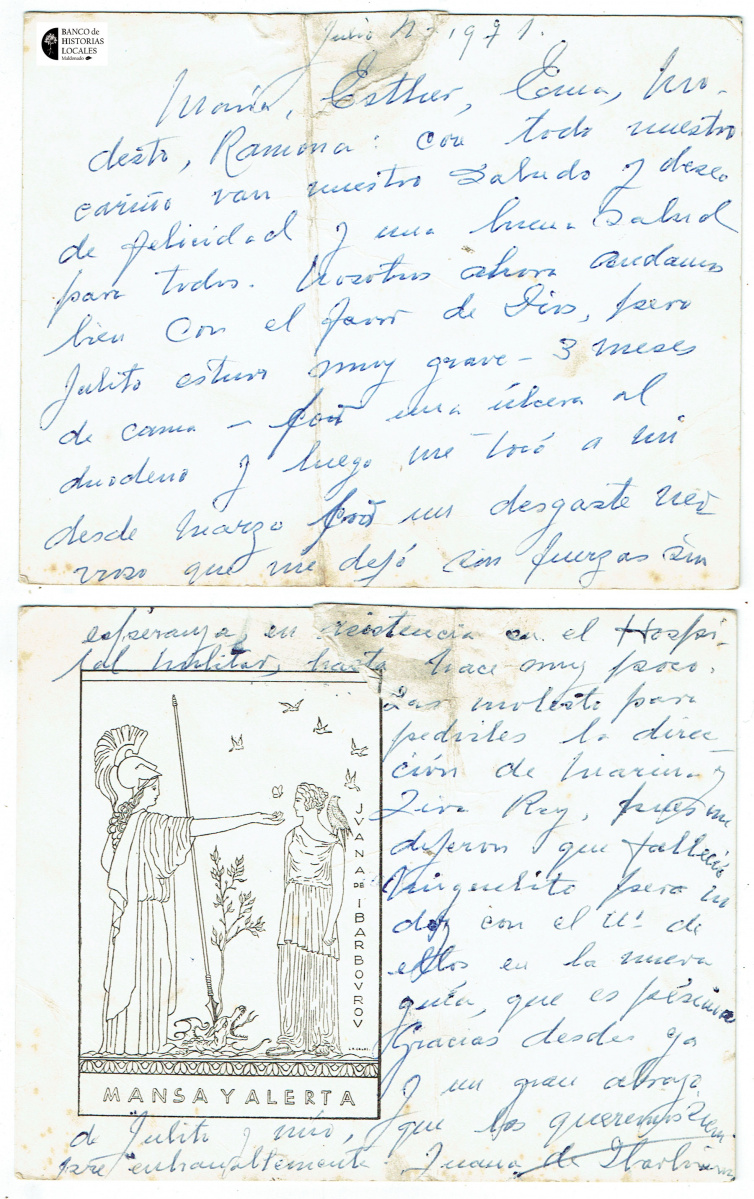 BANCO de
HISTORIAS
LOCALES
Maldonado
Julio 1971.
María, Esther, Ema, Mo-
desto, Ramona: con todo nuestro
cariño van nuestro saludo y deseo
de felicidad y una buena salud
para todos. Nosotros ahora andamos
bien con el favor de Dios, pero
Julito estuvo muy grave - 3 meses
de cama - por una úlcera al
duodeno y luego me tocó a mí
desde Marzo por un desgaste ner
vioso que me dejó sin fuerzas sin
esperanza, en asistencia en el Hospi-
tal Militar, hasta hace muy poco.
Las molesto para
pedirles la direc
ción de Marina y
Ray, pues me
dijeron que falleció
pero no
doy con el Nº de
ellos en la nueva
guía, que es pésima
Gracias desde ya
y un gran abrazo
de Julito y mío, que los queremos siem
pre entrañablemente. Juana de Ibarbourou
JVANA DE IBARBOVROV
MANSA Y ALERTA